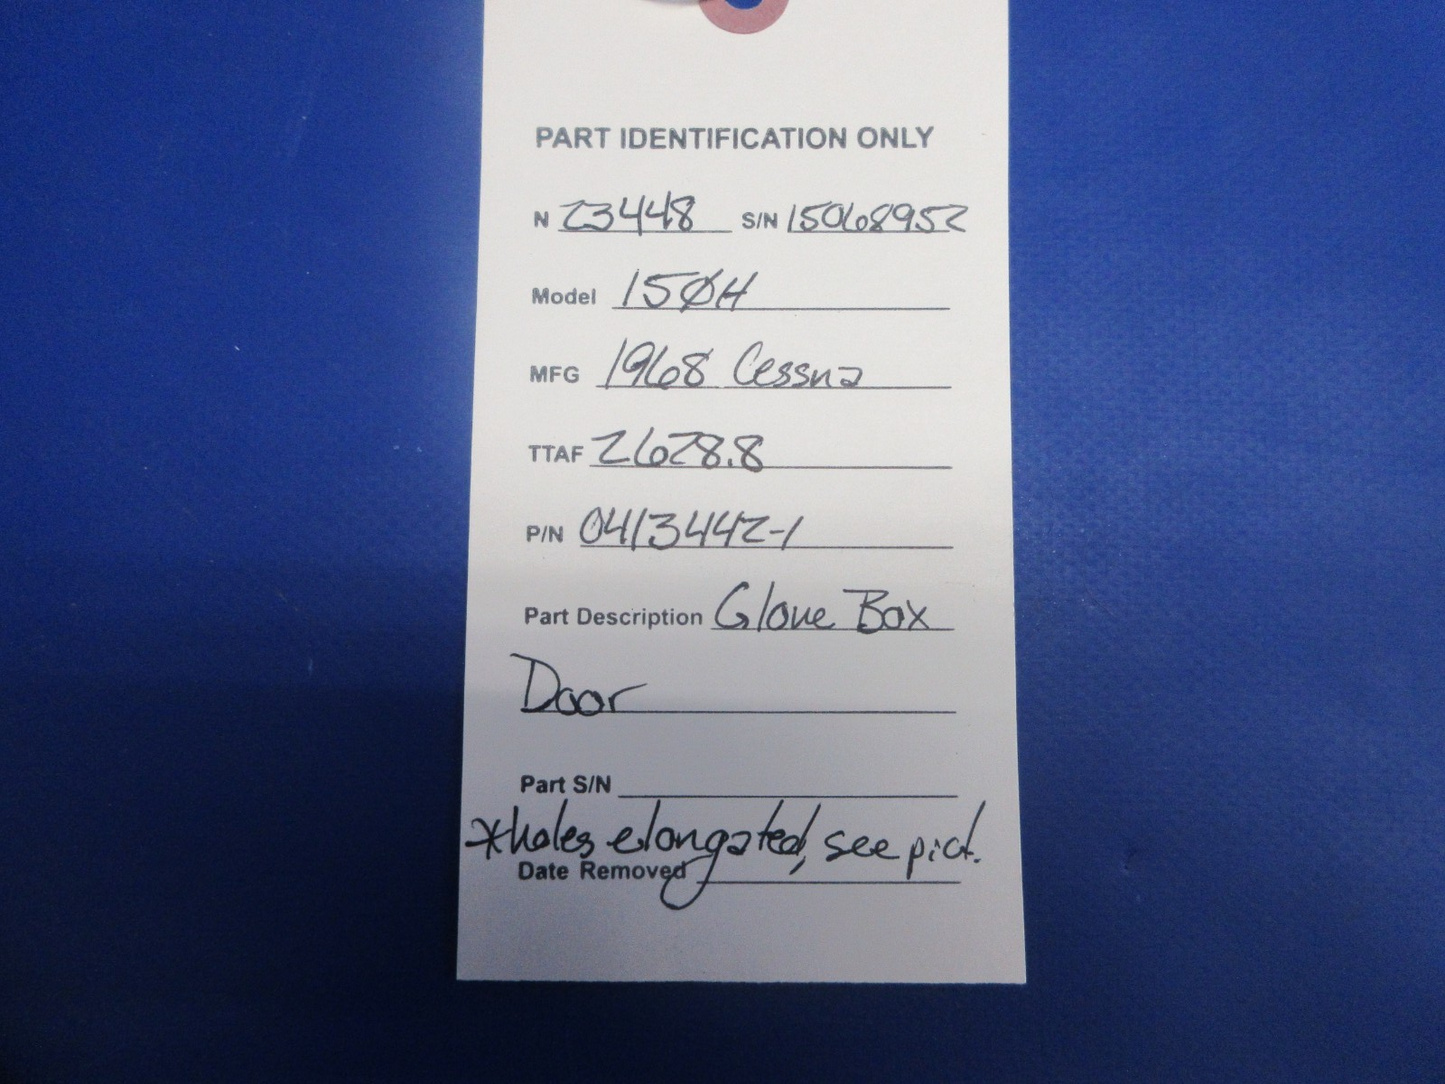 PART IDENTIFICATION ONLY
N 23448 S/N 15068952
Model 150H
MFG 1968 Cessna
TTAF 2628.8
P/N 0413442-1
Part Description Glove Box
Door
Part S/N
*holes elongated, see pict.
Date Removed